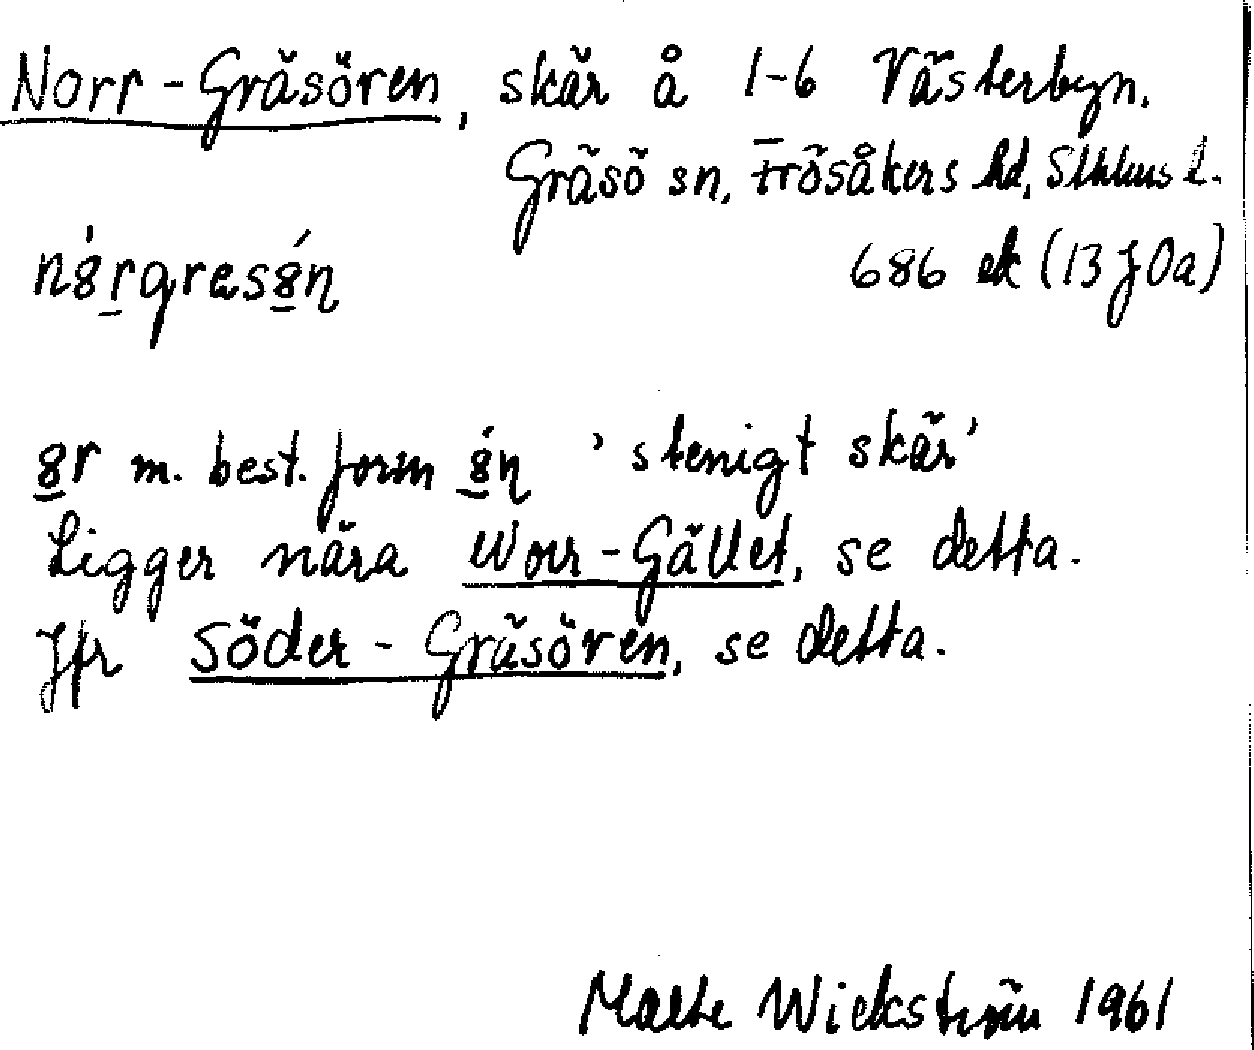 Norr-Gräsören, skär å 1-6 Västerbyn.
Gräsö sn, Frösåkers hd, Sthlms l.
686 ek (13 J 0a)
m. best. form 'stenigt skär'
Ligger nära Norr-Gället, se detta.
Jfr Söder-Gräsören, se detta.
Malte Wickström 1961